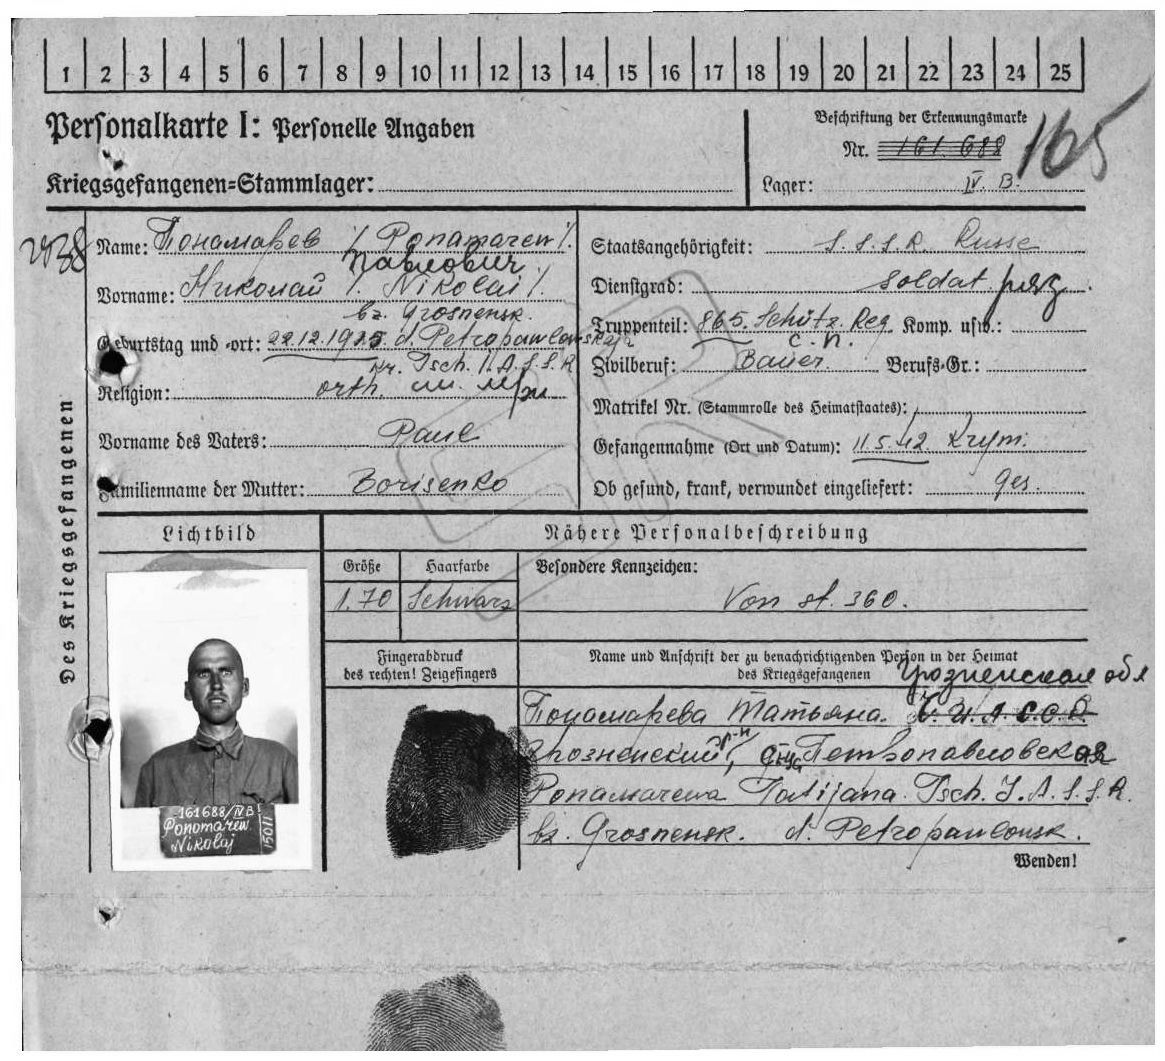 1 2 3 4 5 6 7 8 9 10 11 12 13 14 15 16 17 18 19 20 21 22 23 24 25
Personalkarte I: Personelle Angaben
Kriegsgefangenen-Stammlager:
Beschriftung der Erkennungsmarke
Nr. 161 688
165
Lager: IV. B.
Des Kriegsgefangenen
Name: Пономарев /. Ponamarew /.
Павлович
Vorname: Николай /. Nikolai /.
bz. Grosnensk.
Geburtstag und -ort: 22.12.1915 d. Petropawlowskaja
Kr. Tsch. I. A. S. S. R
Religion: orth.
Vorname des Vaters: Paul
Familienname der Mutter: Borisenko
Staatsangehörigkeit: S.S.S.R. Russe
Dienstgrad: soldat ряд
Truppenteil: 865. Schütz. Reg. Komp. usw.:
с. п.
Zivilberuf: Bauer. Berufs-Gr.:
Matrikel Nr. (Stammrolle des Heimatstaates):
Gefangennahme (Ort und Datum): 11.5.42. Krym.
Ob gesund, krank, verwundet eingeliefert: ges.
Lichtbild
Nähere Personalbeschreibung
Größe Haarfarbe Besondere Kennzeichen:
1.70 Schwarz Von st. 360.
Fingerabdruck
des rechten! Zeigefingers
Name und Anschrift der zu benachrichtigenden Person in der Heimat
des Kriegsgefangenen
Грозненская обл
Пономарева Татьяна. Ч. И. А. С. С. Р.
Грозненский р-н, Петропавловская
Ponamarewa Tatijana. Tsch. I. A. S. S. R.
bz. Grosnensk. d. Petropawlowsk.
Wenden!
161688/IVB
Ponomarew
Nikolaj
15011